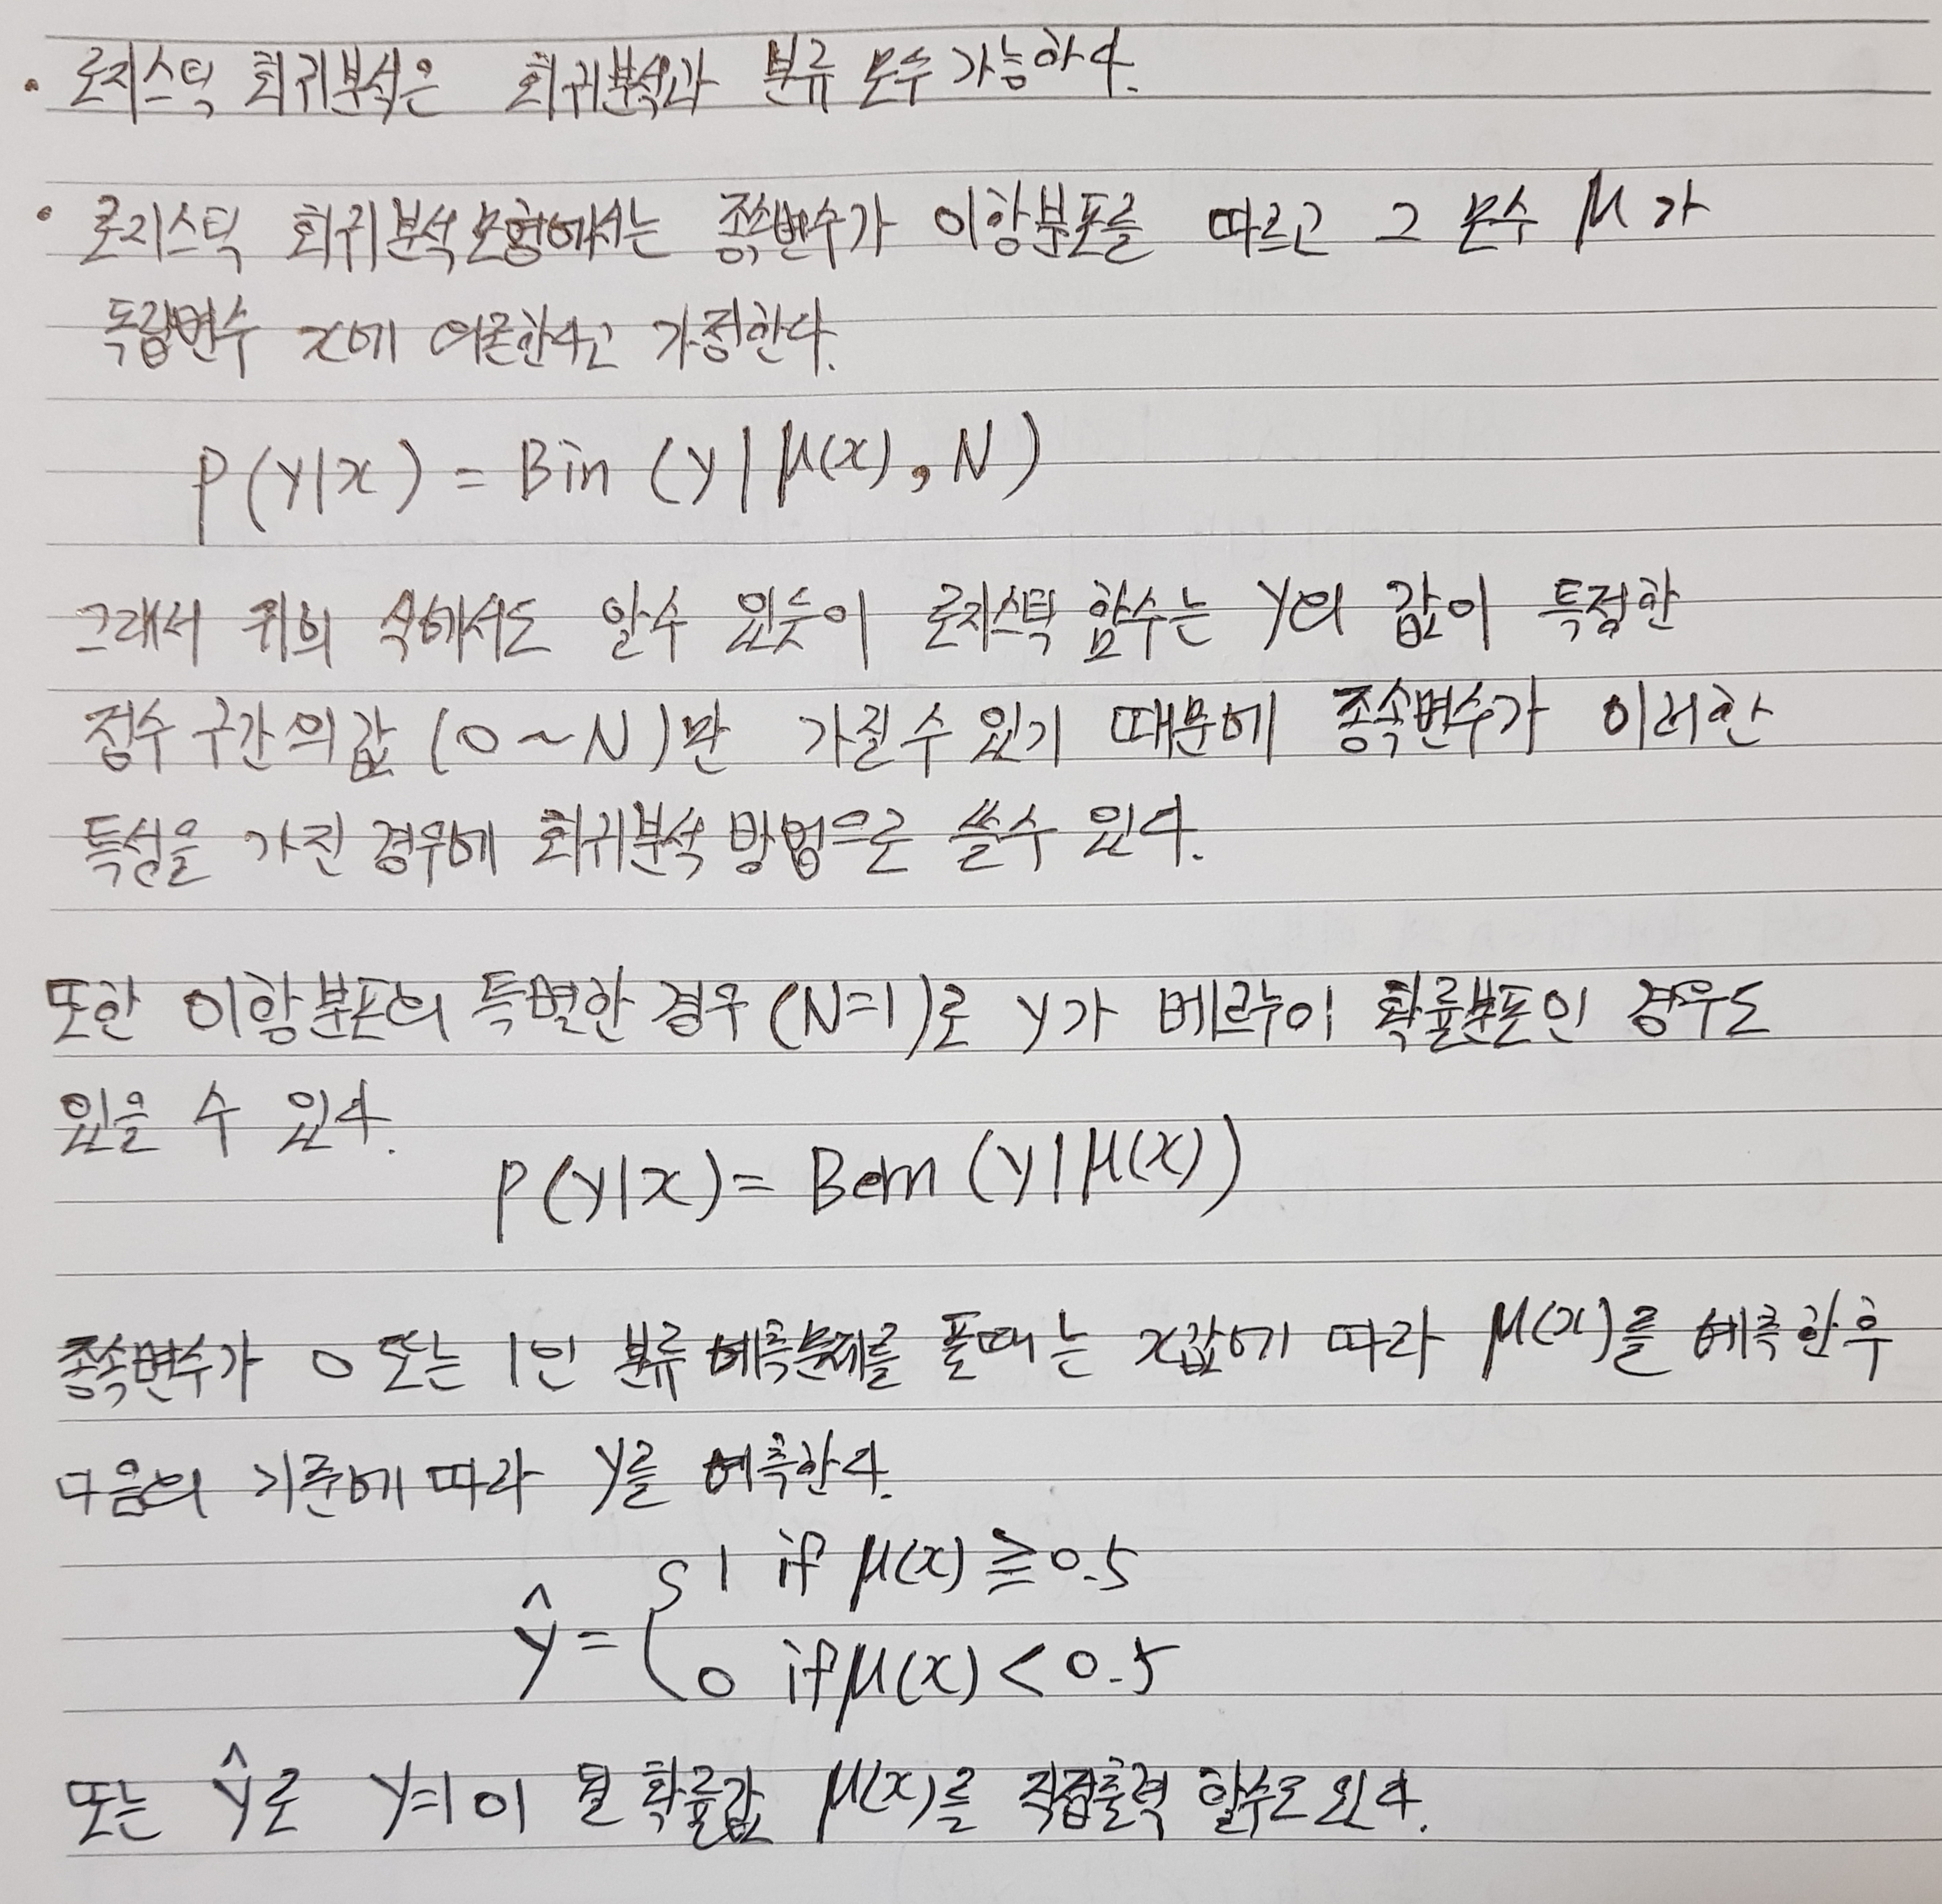 · 로지스틱 회귀분석은 회귀분석과 분류 모두 가능하다.
· 로지스틱 회귀분석모형에서는 종속변수가 이항분포를 따르고 그 모수 μ가
독립변수 x에 의존한다고 가정한다.
P(y|x) = Bin (y|μ(x), N)
그래서 위의 식에서도 알수 있듯이 로지스틱 함수는 y의 값이 특정한
정수 구간의 값 (0~N)만 가질 수 있기 때문에 종속변수가 이러한
특성을 가진 경우에 회귀분석 방법으로 쓸수 있다.
또한 이항분포의 특별한 경우 (N=1)로 y가 베르누이 확률분포인 경우도
있을 수 있다.
P(y|x) = Bern (y|μ(x))
종속변수가 0 또는 1인 분류 예측문제를 풀때는 x값에 따라 μ(x)를 예측한 후
다음의 기준에 따라 y를 예측한다.
ŷ = { 1 if μ(x) ≧ 0.5
0 if μ(x) < 0.5
또는 ŷ로 y=1이 될 확률값 μ(x)를 직접출력 할수도 있다.